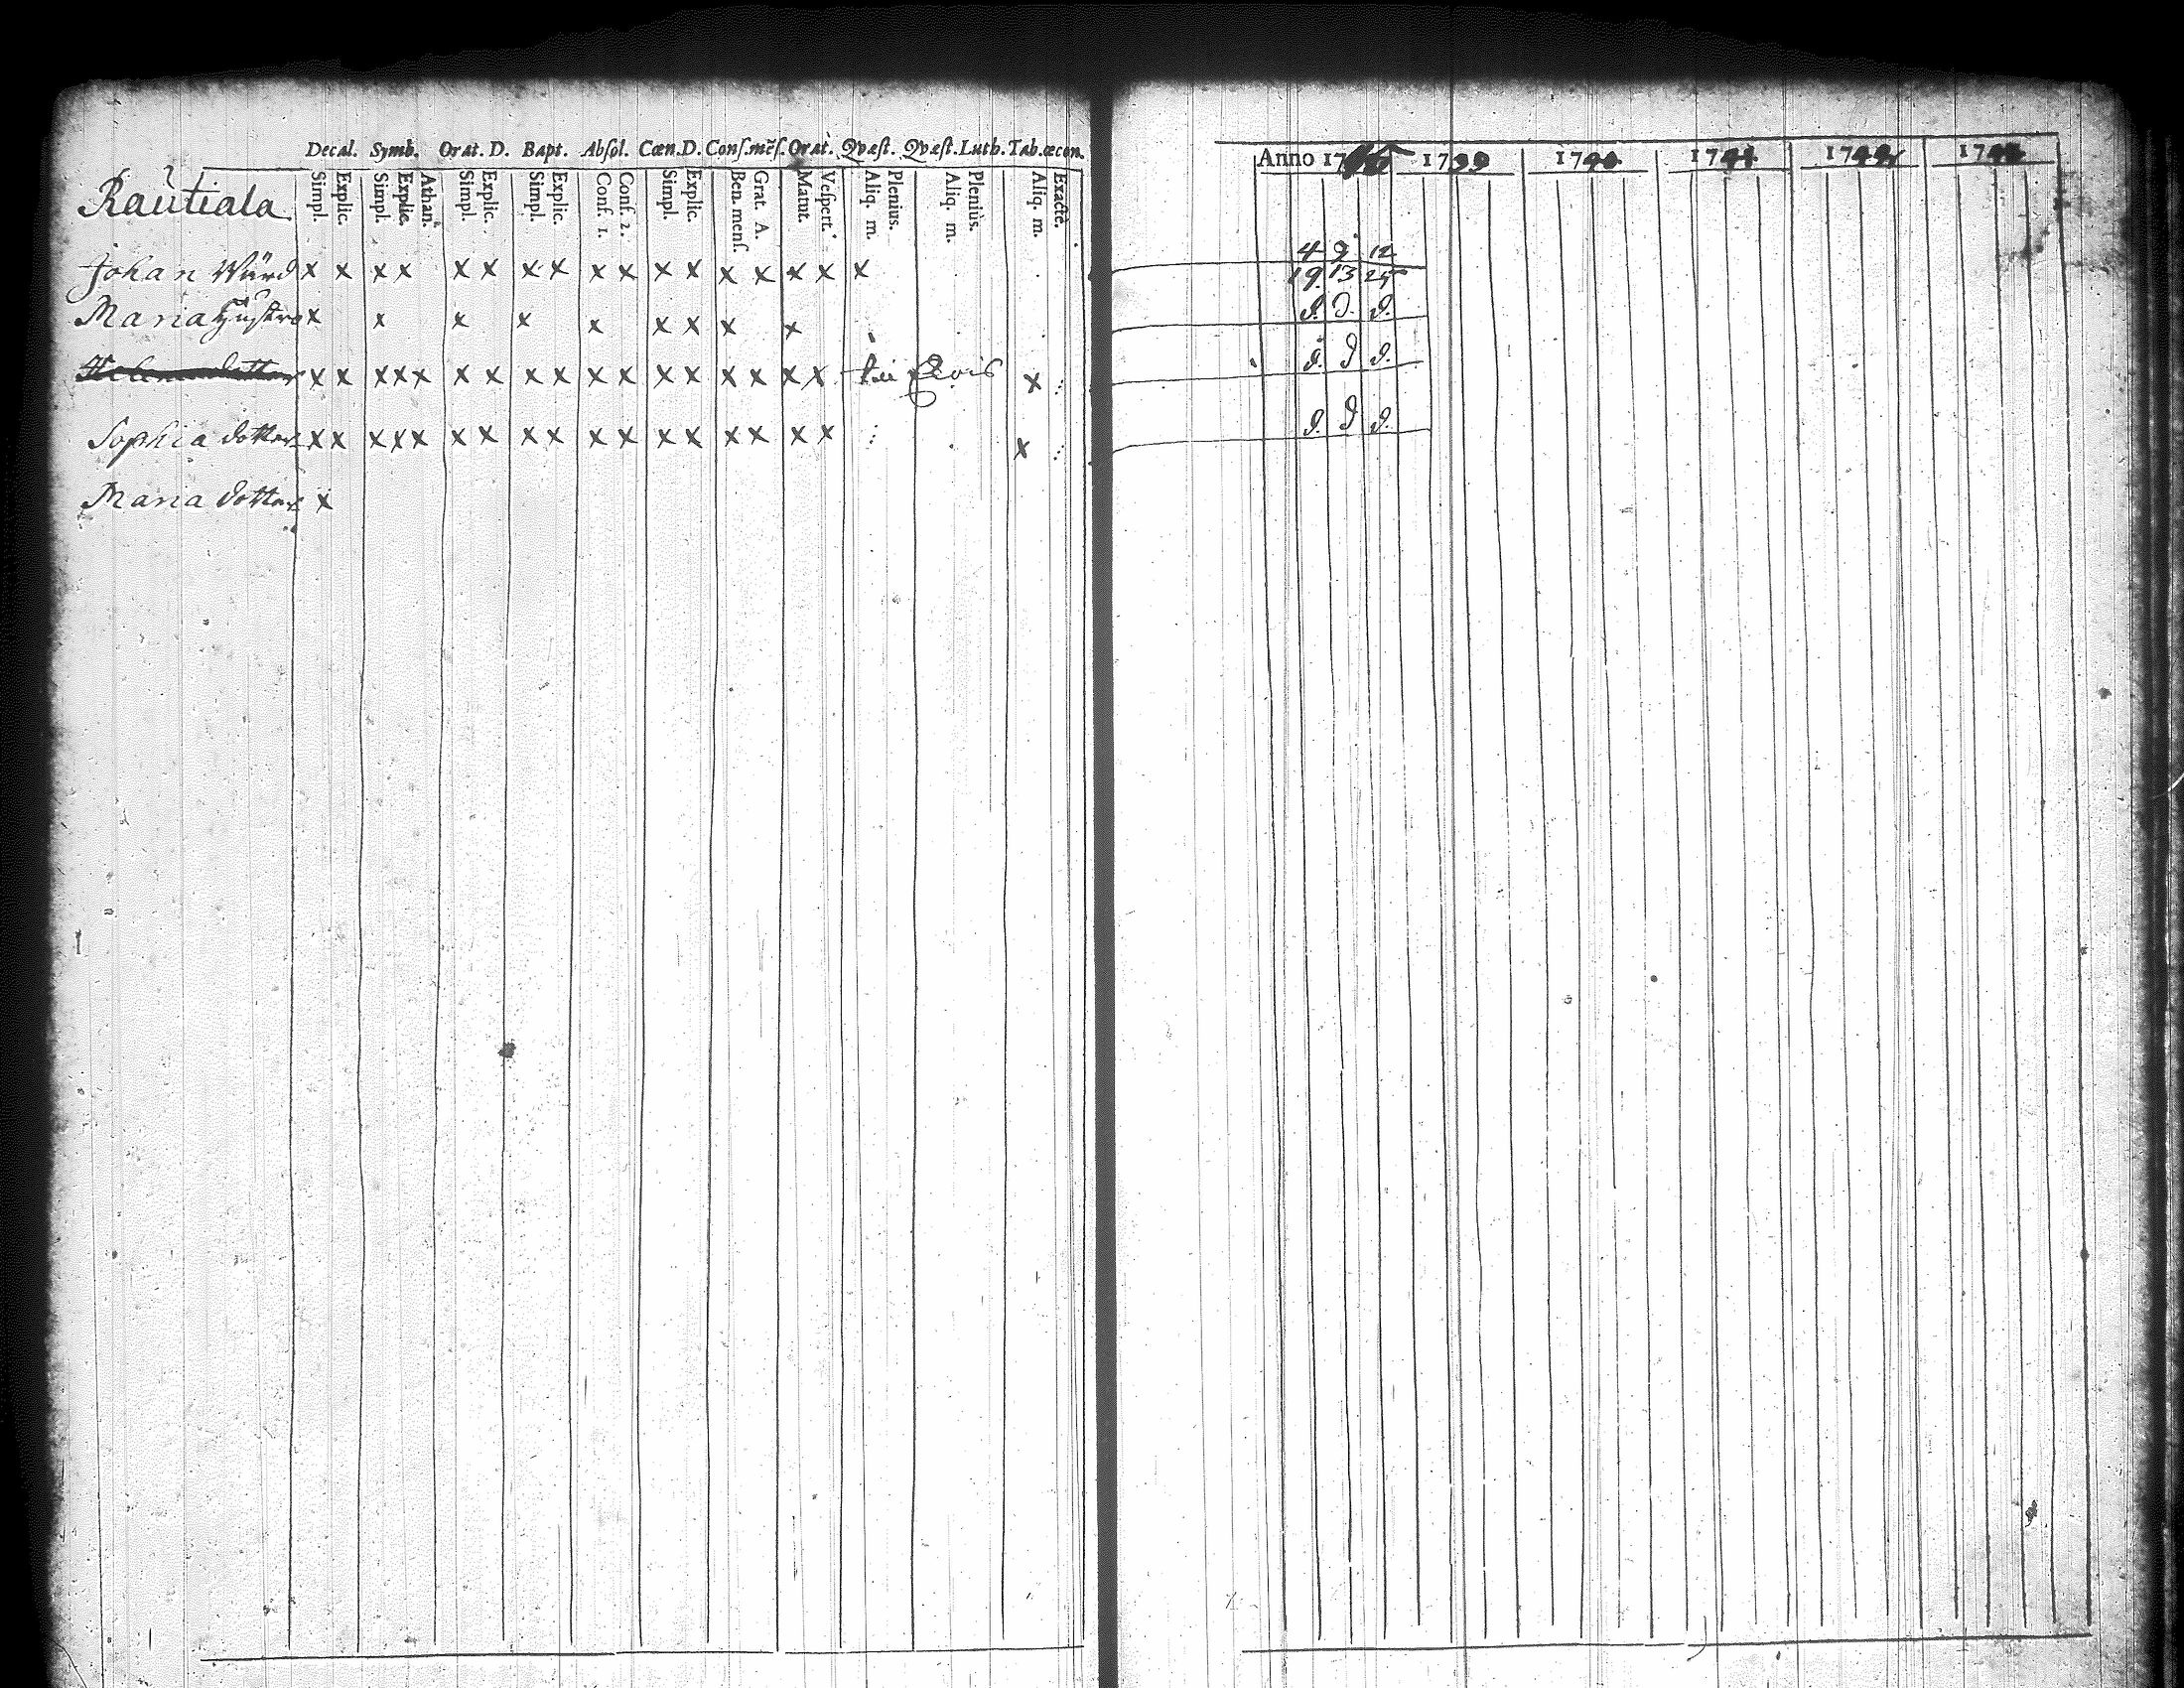 Decal. Symb. Orat. D. Bapt. Abſol. Cœn. D. Conſ. mẽſ. Orat. Qvæſt. Qvæſt. Luth. Tab. œcon.
Simpl. Explic. Simpl. Explic. Athan. Simpl. Explic. Simpl. Explic. Conf. 1. Conf. 2. Simpl. Explic. Ben. menſ. Grat. A. Matut. Veſpert. Aliq. m. Plenius. Aliq. m. Pleniùs. Aliq. m. Exactè.
Rautiala
Johan Wärd x x x x x x x x x x x x x x x x x
Maria Hustro x x x x x x x x x
Helena dotter x x x x x x x x x x x x x x x x x x
Sophia dotter x x x x x x x x x x x x x x x x x x
Maria dotter x
Anno 17 1739 1740 1741 17 17
4 9 12
19 13 25
d. d. d.
d. d d.
d. d d.